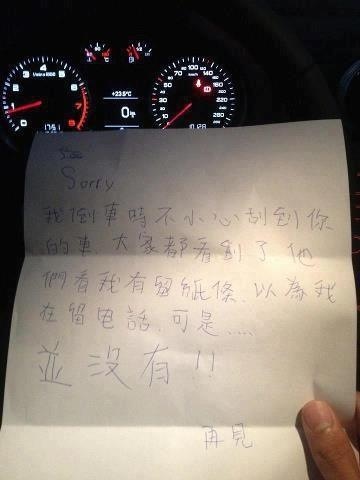 Sorry
我倒車時不小心刮到你
的車,大家都看到了他
們看我有留紙條,以為我
在留电話,可是.....
並沒有!!
再見
+23.5°C